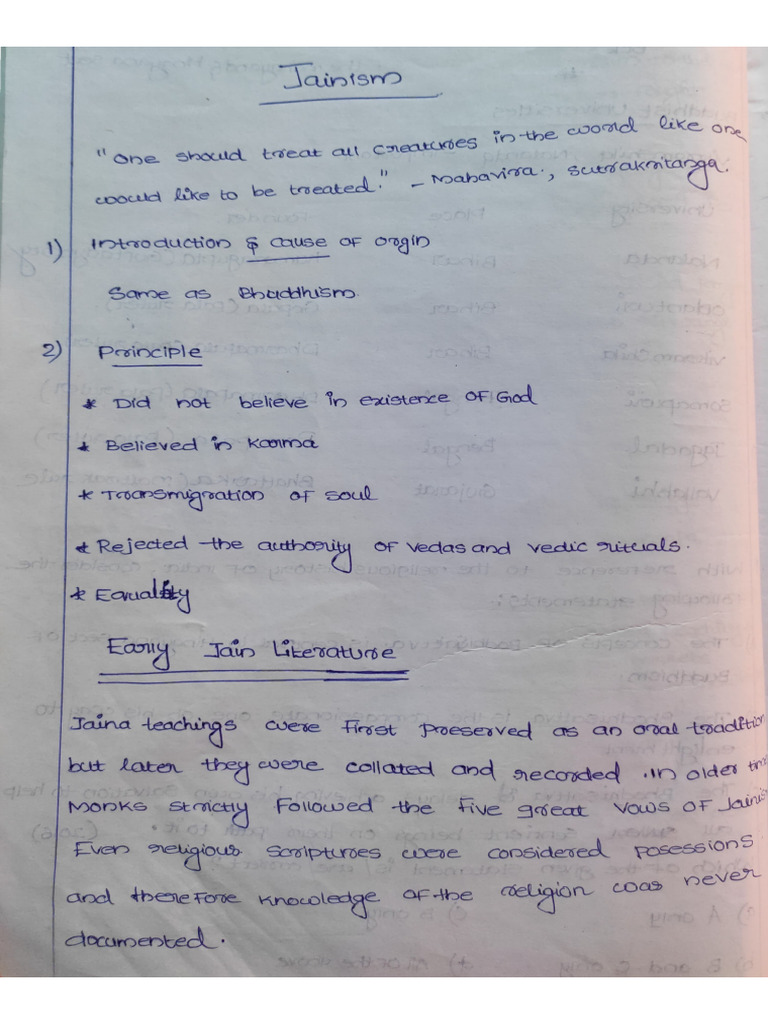 Jainism
"One should treat all creatures in the world like one
would like to be treated." - Mahavira., Sutrakritanga.
1) Introduction & cause of orgin
Same as Bhuddhism
2) Principle
* Did not believe in existence of God
* Believed in Karma
* Transmigration of soul
* Rejected the authority of vedas and vedic rituals.
* Equality
Early Jain Literature
Jaina teachings were first preserved as an oral tradition
but later they were collated and recorded. In older
Monks strictly followed the five great vows of
Even religious scriptures were considered posessions
and therefore knowledge of the religion was never
documented.